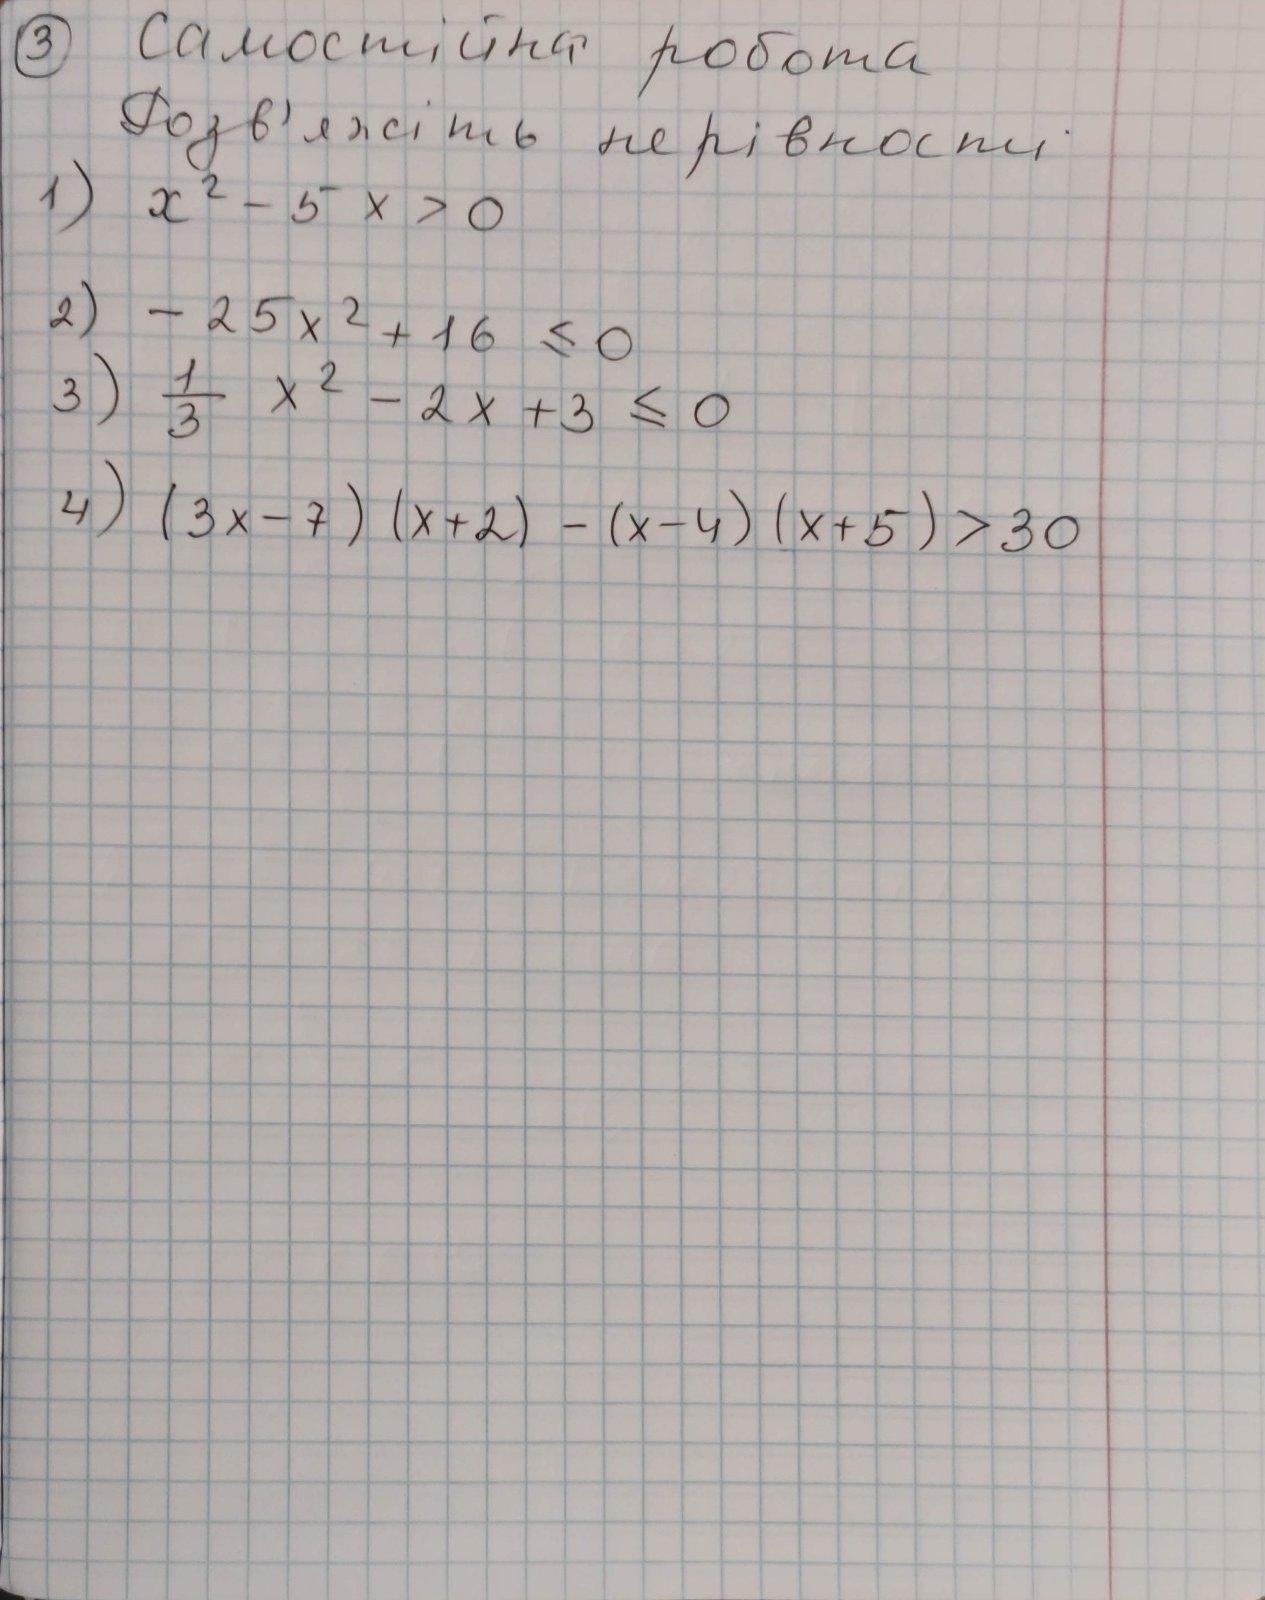 ③ Самостійна робота
Розв'яжіть нерівності
1) x² - 5x > 0
2) - 25x² + 16 ≤ 0
3) 1/3 x² - 2x + 3 ≤ 0
4) (3x - 7) (x + 2) - (x - 4) (x + 5) > 30